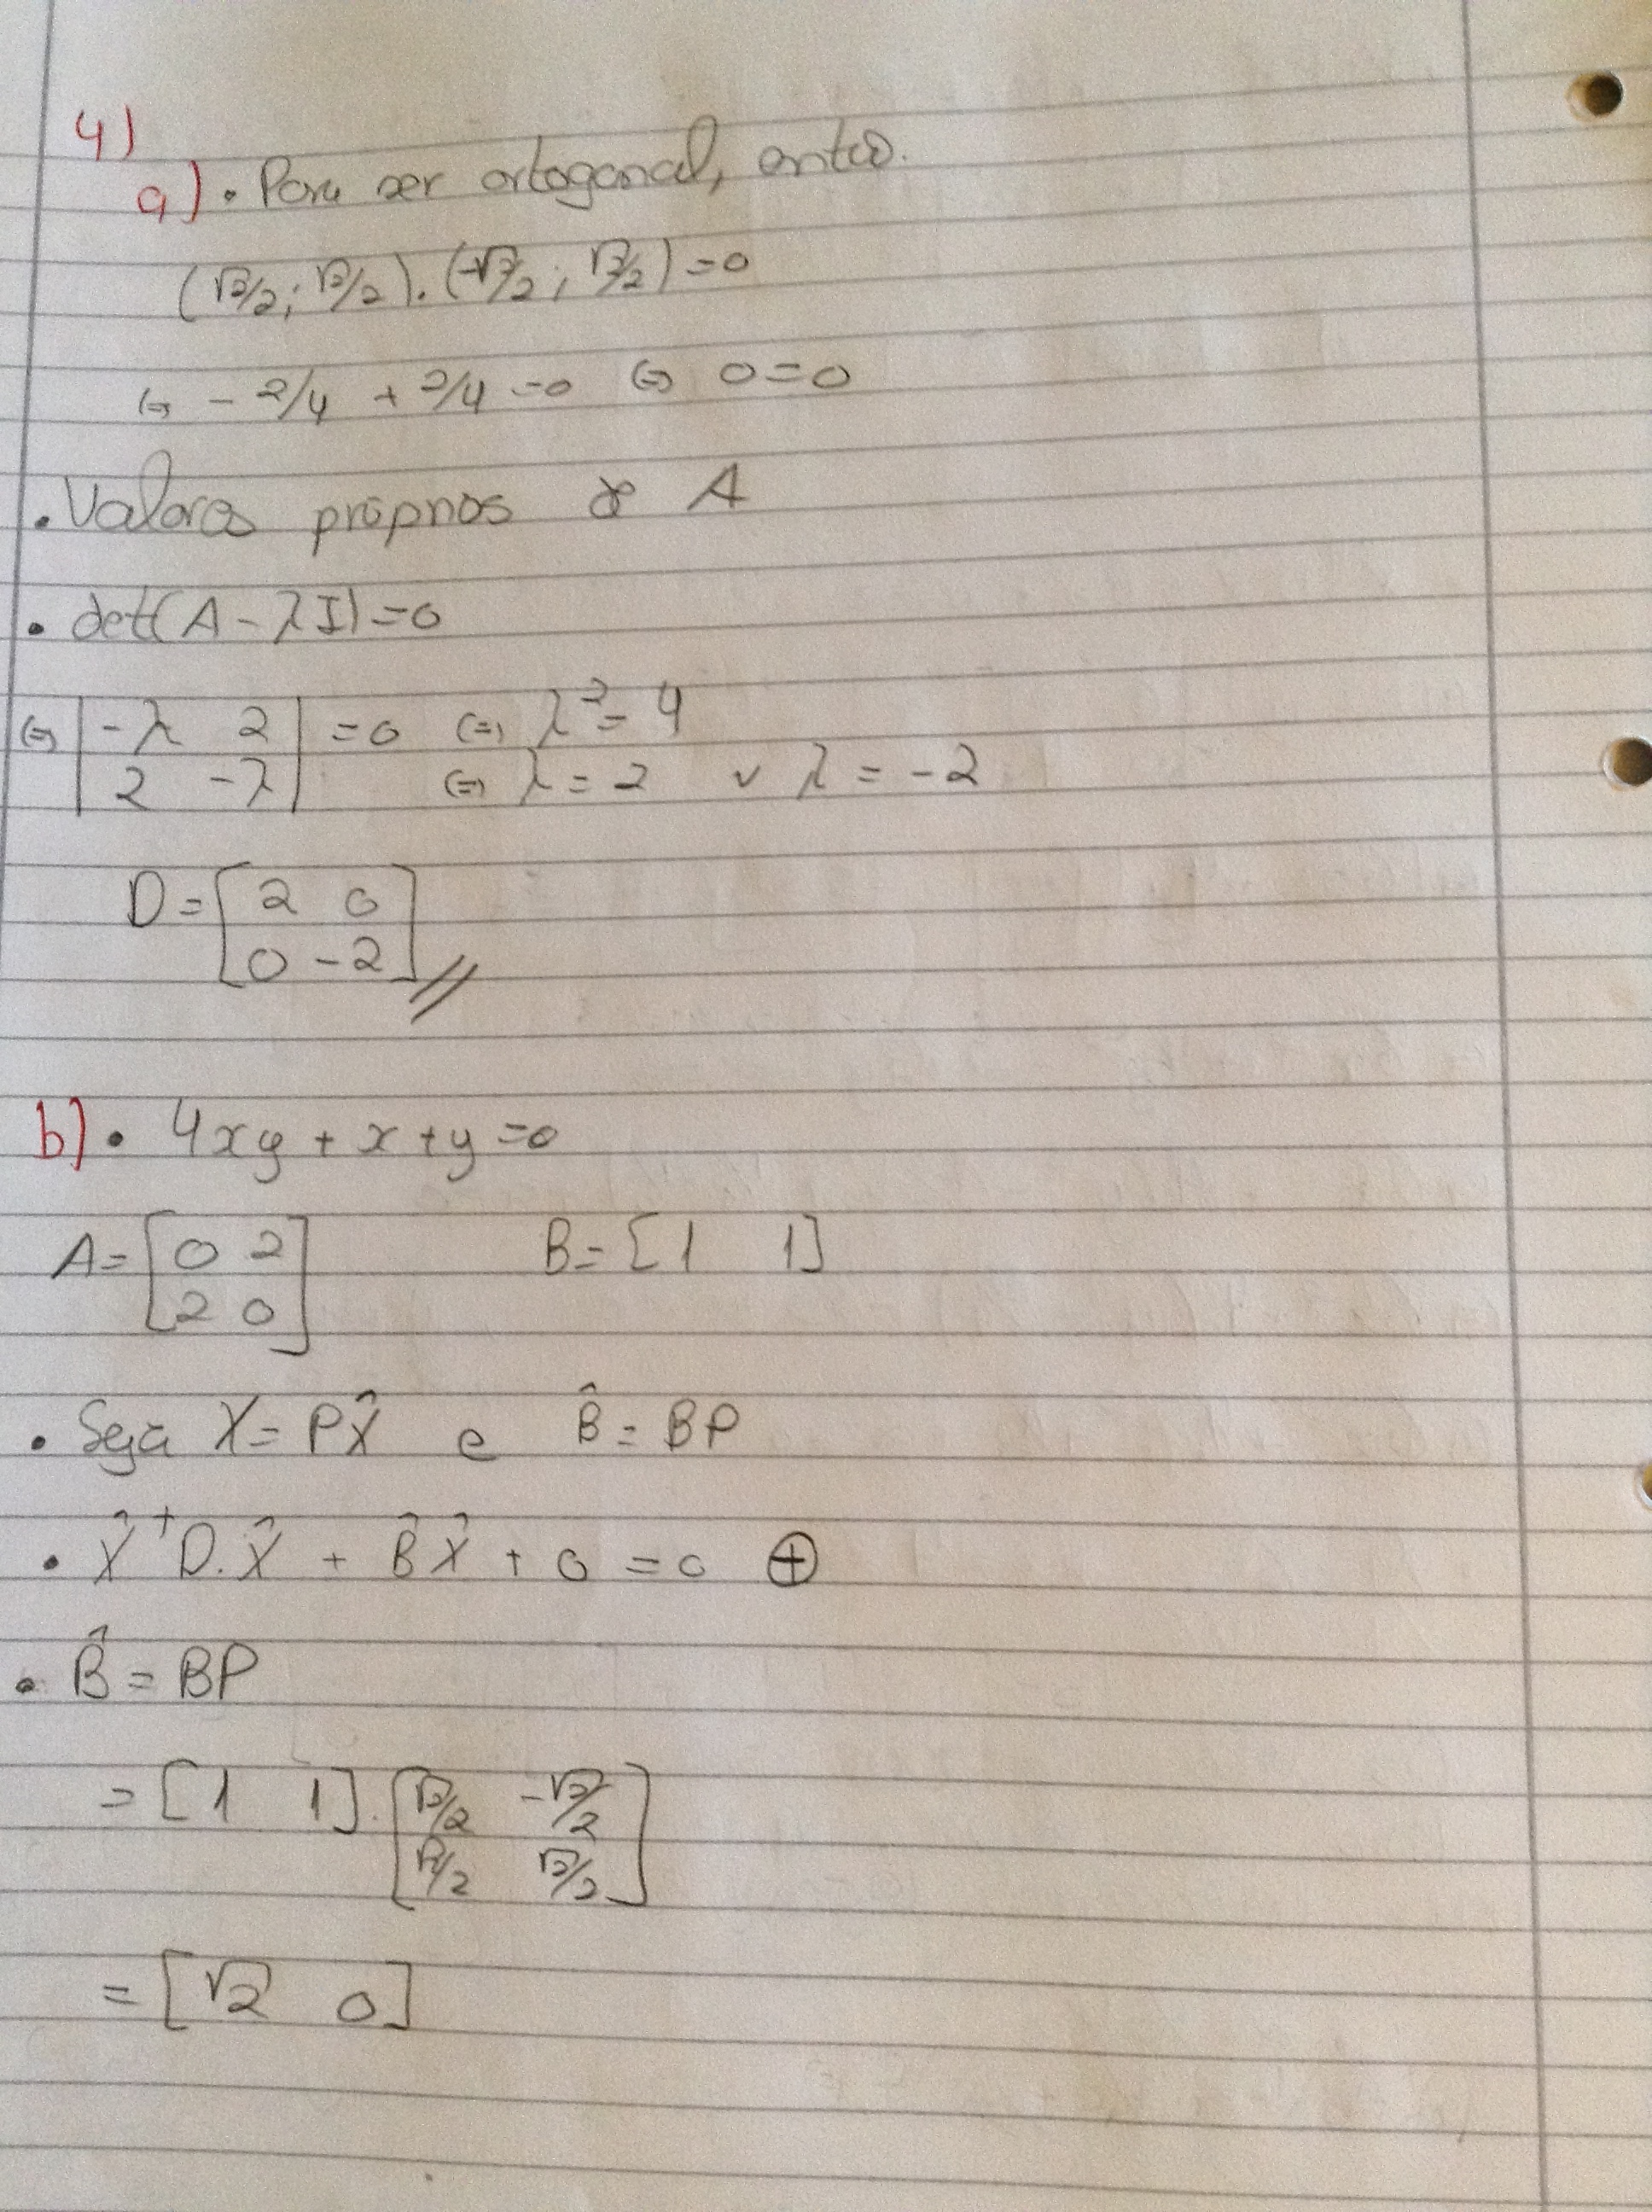 4)
a) • Para ser ortogonal, então.
(√2/2 ; √2/2) . (-√2/2 ; √2/2) = 0
⇔ - 2/4 + 2/4 = 0 ⇔ 0 = 0
• Valores próprios de A
• det(A - λI) = 0
⇔ | -λ 2 | = 0 ⇔ λ² = 4
| 2 -λ | ⇔ λ = 2 ∨ λ = -2
D = [ 2 0
0 -2 ] //
b) • 4xy + x + y = 0
A = [ 0 2 B = [ 1 1 ]
2 0 ]
• Seja X = PX̂ e B̂ = BP
• X̂ᵀD.X̂ + B̂X̂ + 0 = 0 ⊕
• B̂ = BP
= [ 1 1 ] . [ √2/2 -√2/2
√2/2 √2/2 ]
= [ √2 0 ]